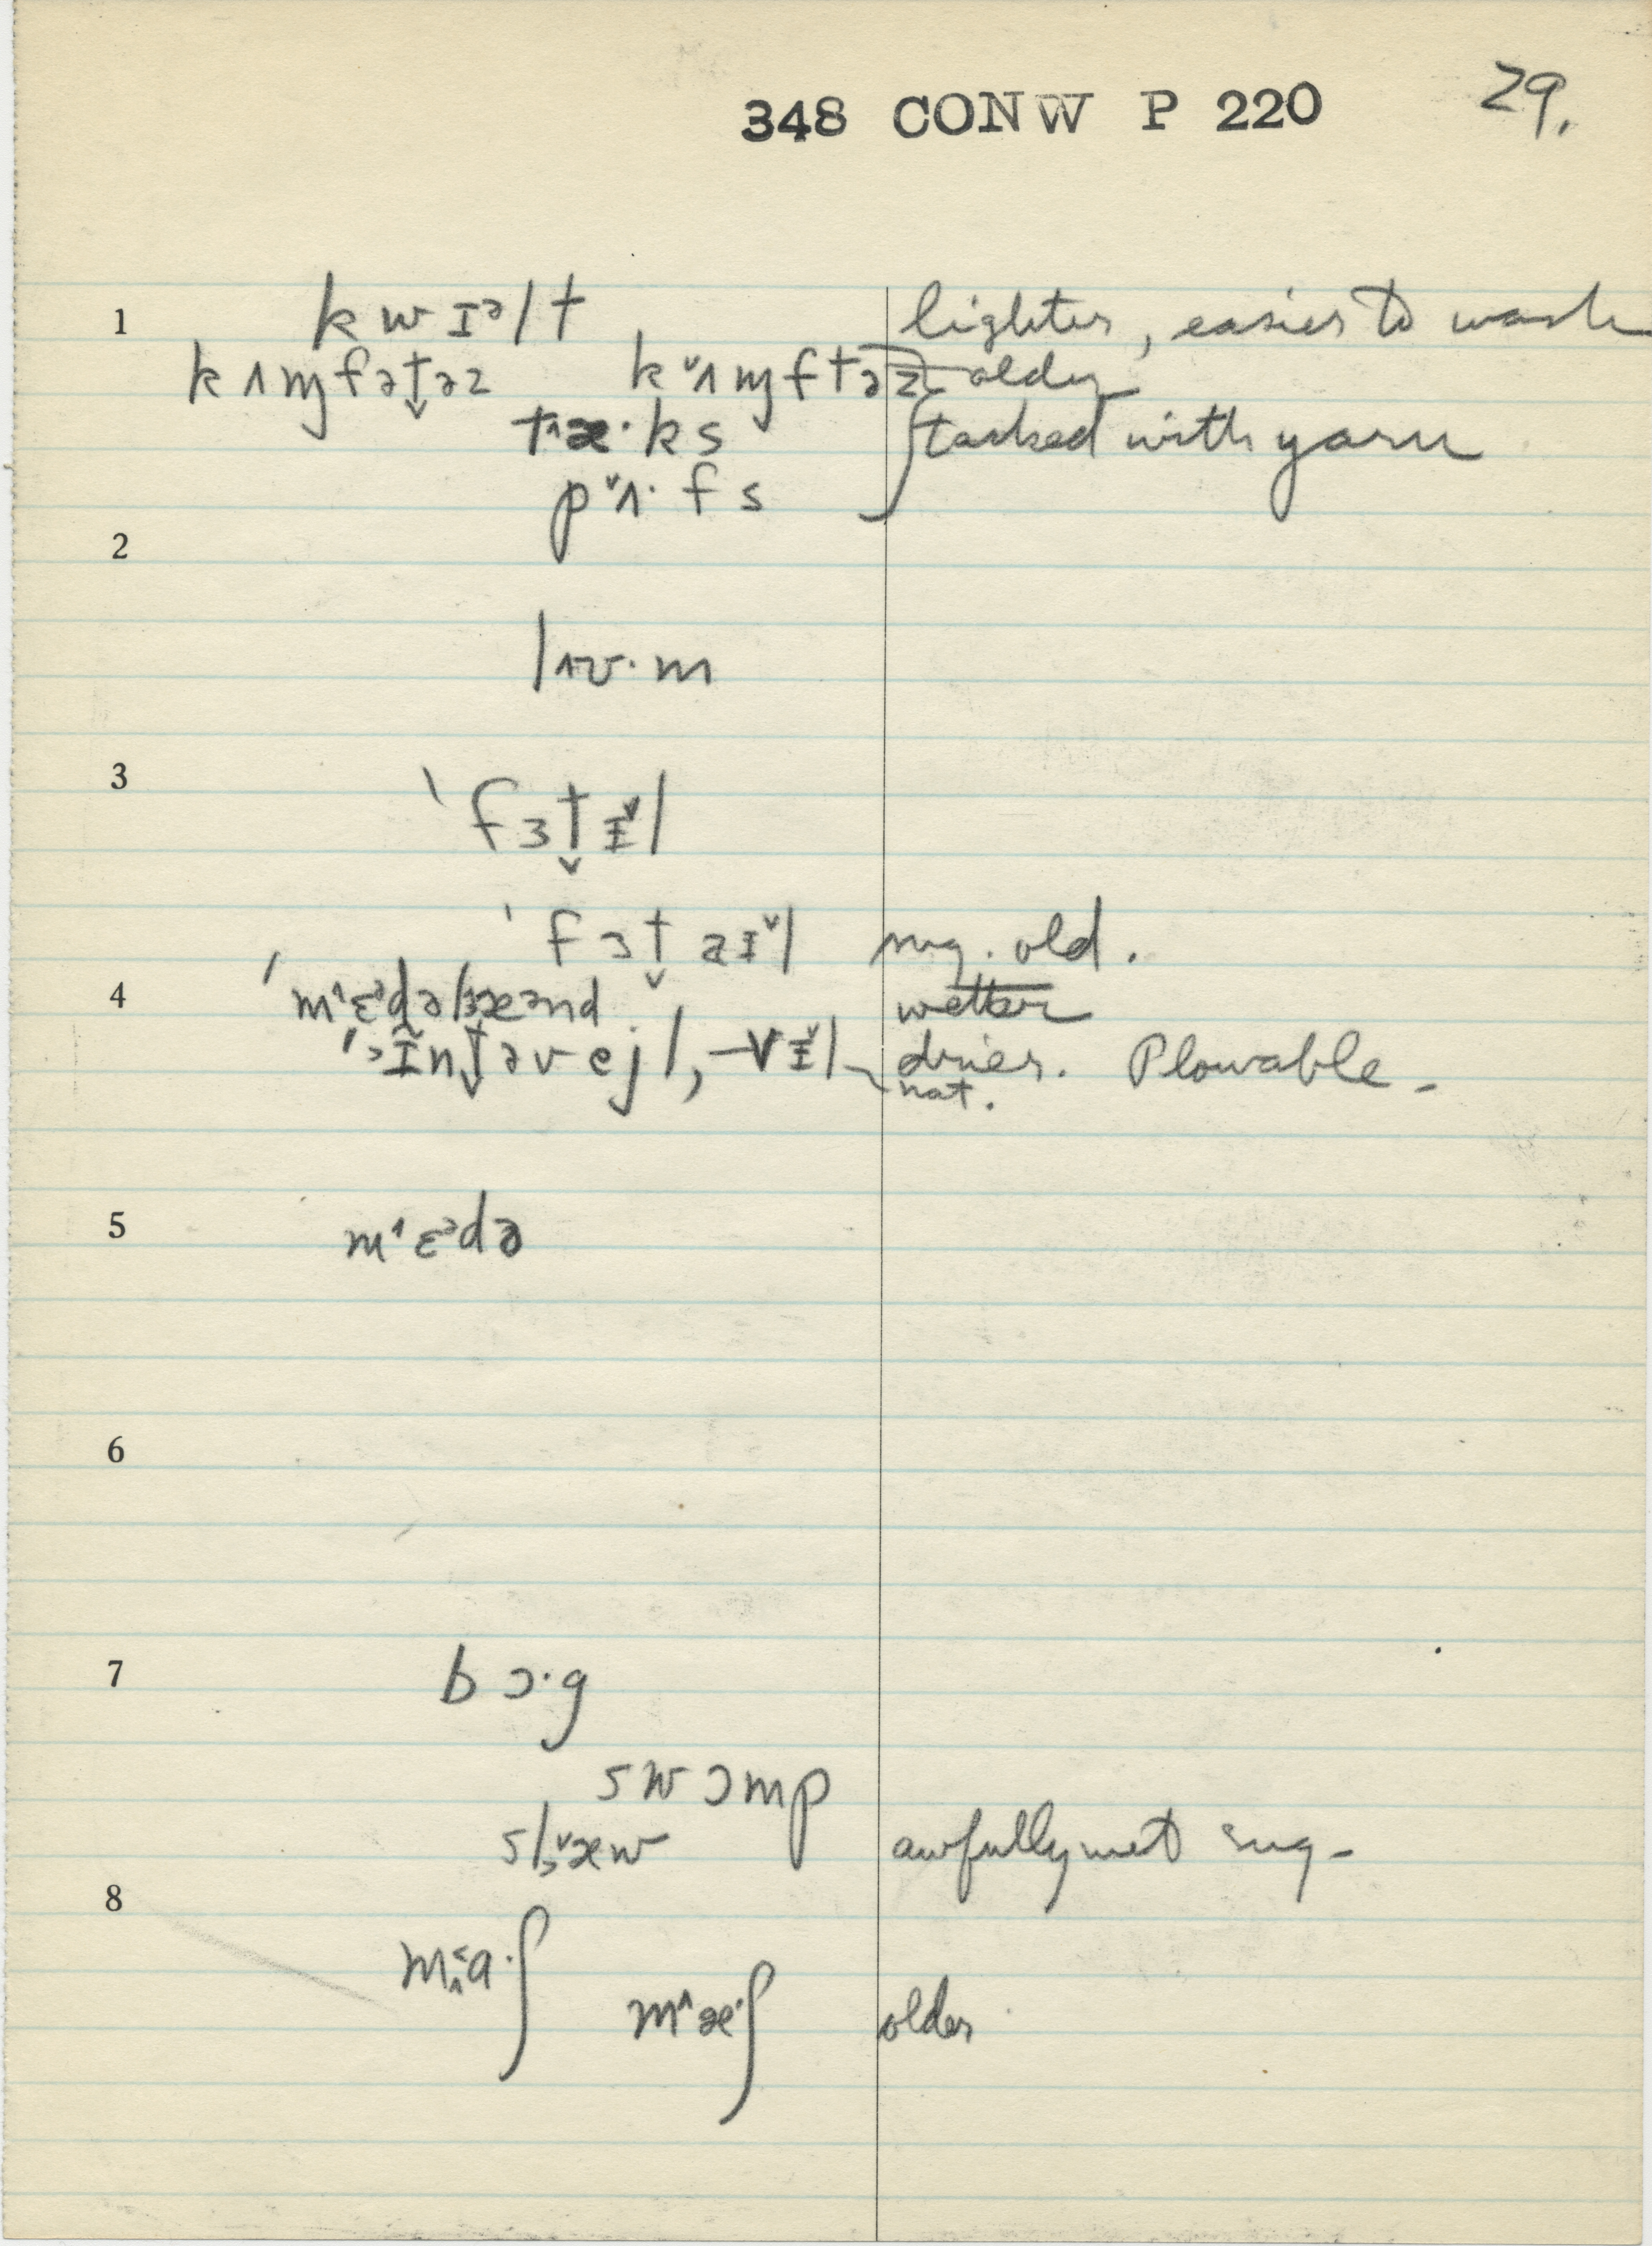 348 CONW P 220 29.
1 kwɪᵊlt lighter, easier to wash
kʌɱfət̬əz k˅ʌɱftəz older
t˄æ·ks tacked with yarn
p˅ʌ·fs
2
l˄ʊ·m
3
ˈfɜt̬ɪ˅l
ˈfɜt̬aɪ˅l sug. old.
4 ˈm˄ɛᵊdə læᵊnd wetter
drier. Plowable -
nat.
5 m˄ɛᵊdə
6
7 bɔ·g
swɔmp
sl˅æw awfully wet sug-
8
ma·ʃ
m˄æ·ʃ older